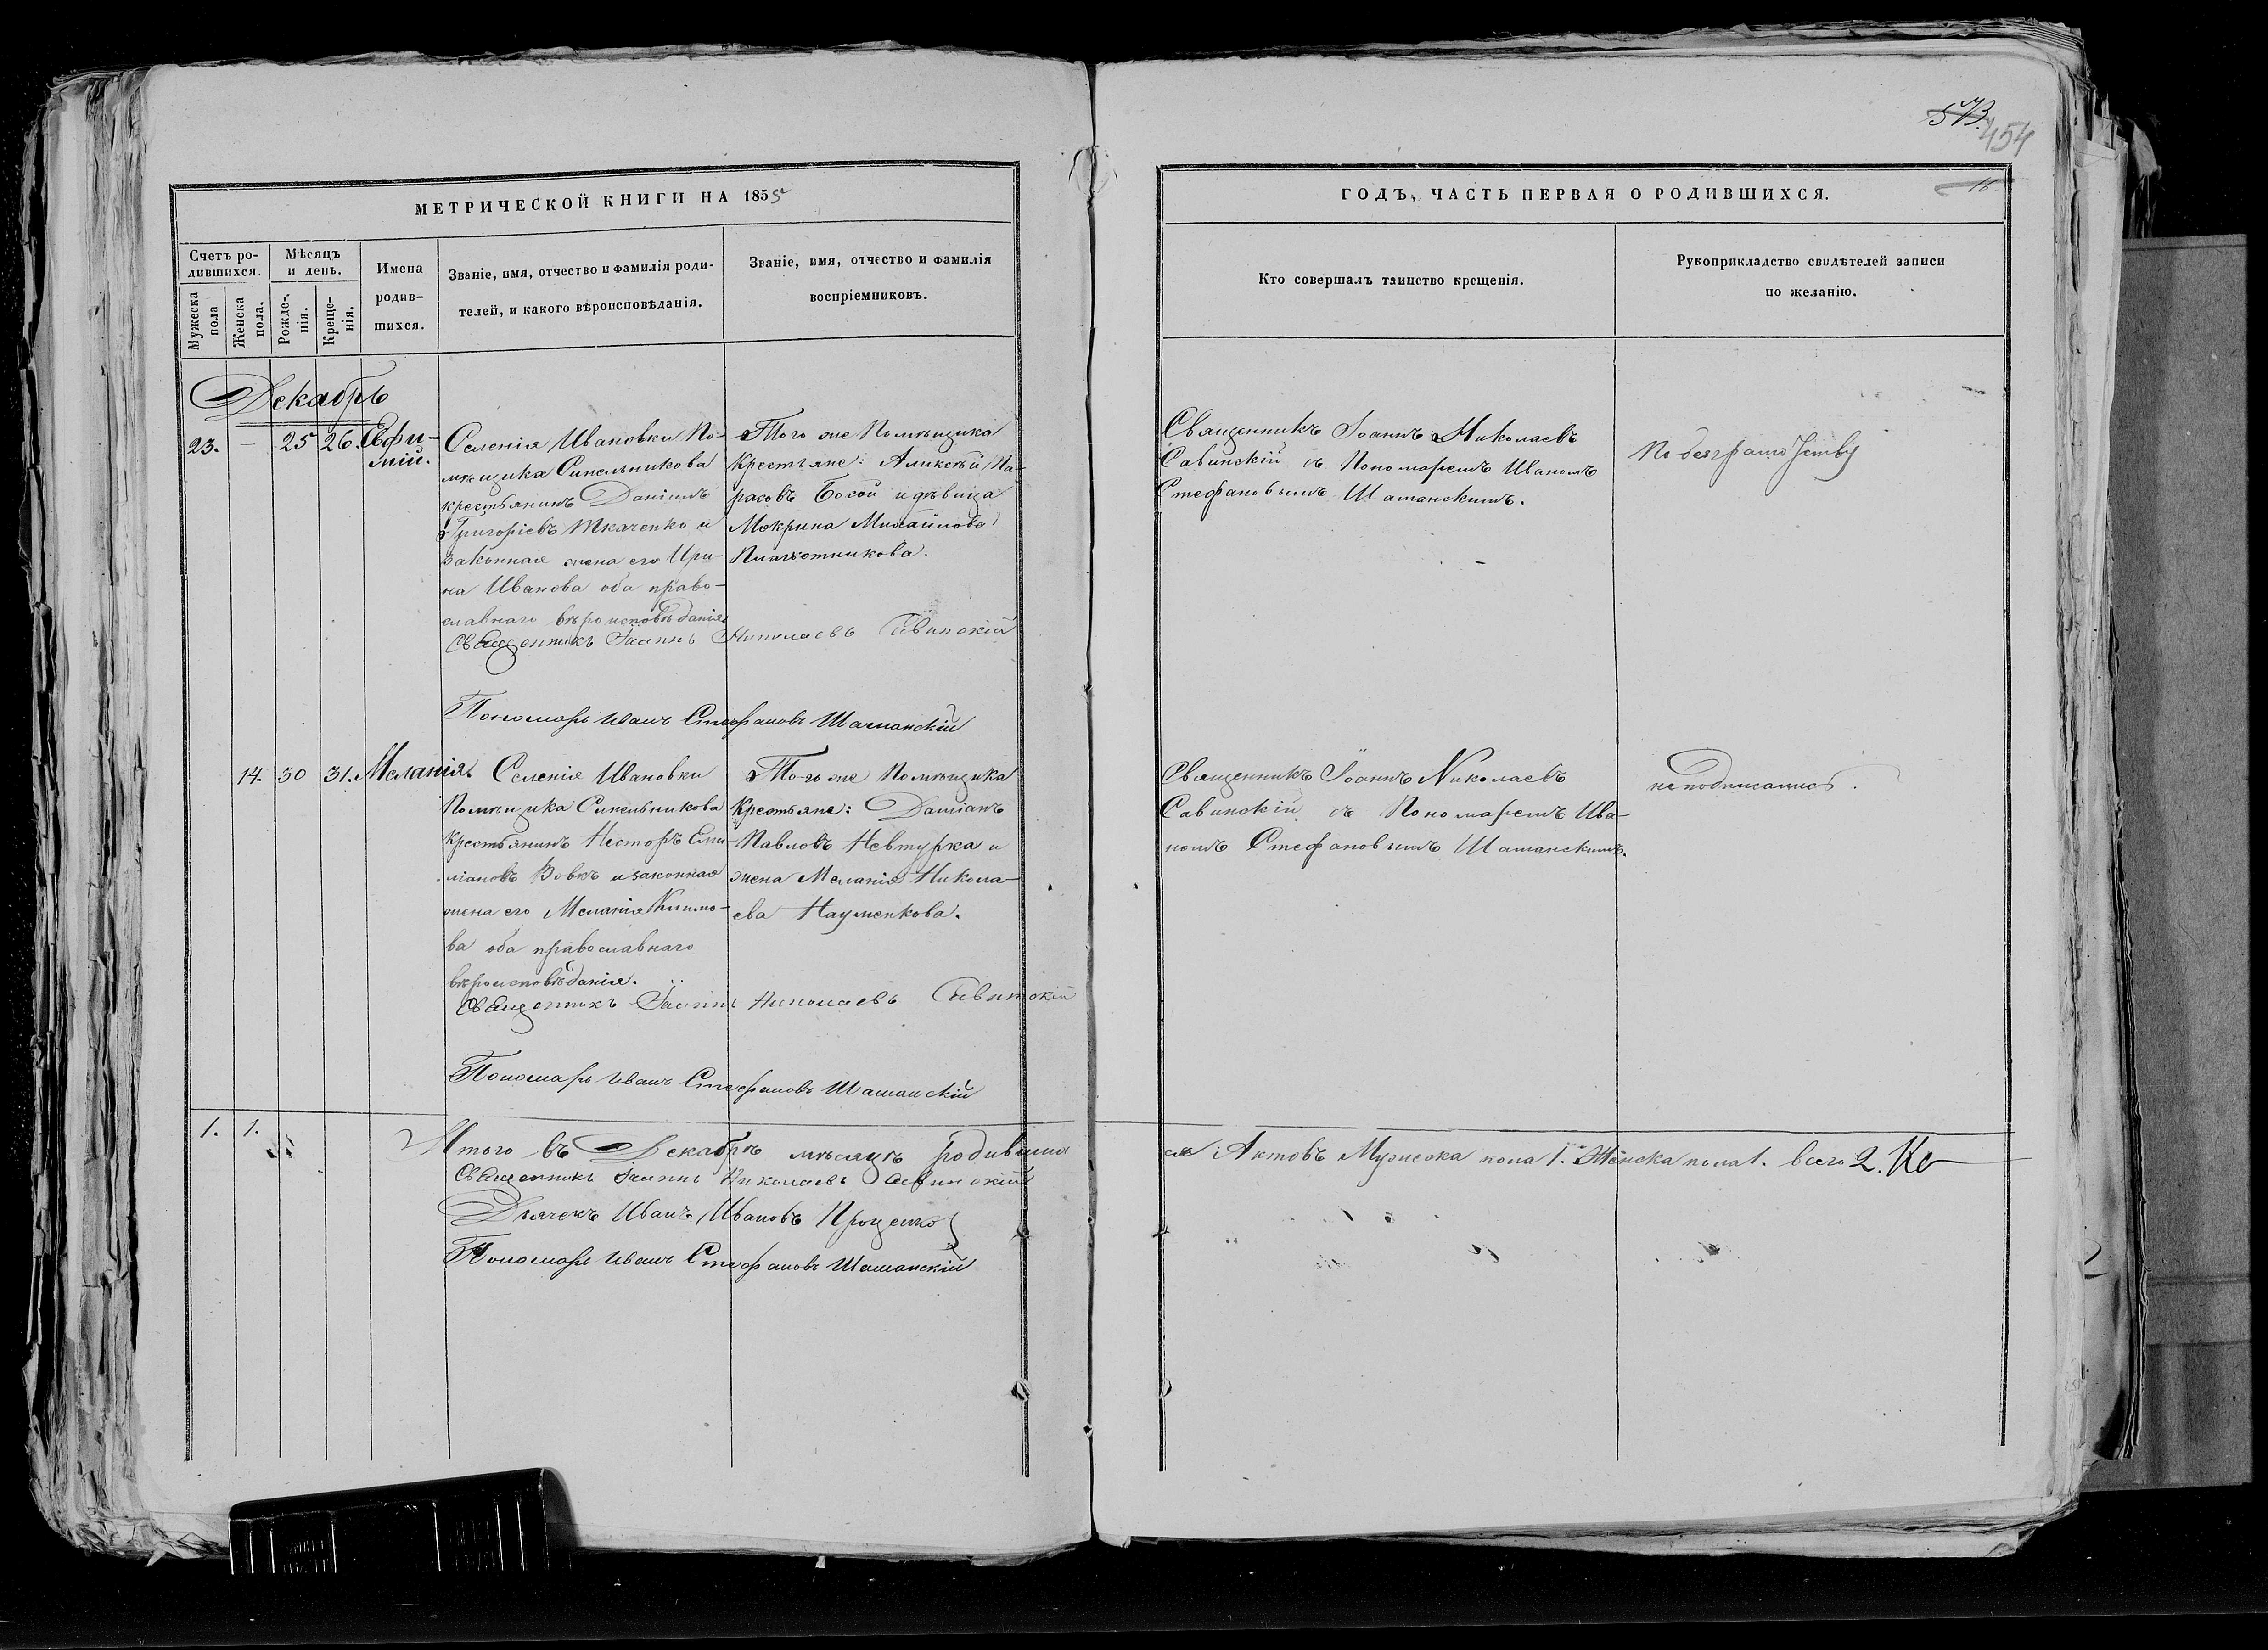 573.
454
МЕТРИЧЕСКОЙ КНИГИ НА 1855
Счетъ ро-
дившихся.
Мужеска пола
Женска пола.
Мѣсяцъ
и день.
Рожде-
нія.
Креще-
нія.
Имена
родив-
шихся.
Званіе, имя, отчество и фамилія роди-
телей, и какого вѣроисповѣданія.
Званіе, имя, отчество и фамилія
воспріемниковъ.
Декабрь
23. — 25 26. Ефи-
мій.
Селенія Ивановки По-
мѣщика Синельникова
крестьянинъ Даніилъ
Григоріевъ Ткаченко и
законная жена его Ири-
на Иванова оба право-
славнаго вѣроисповѣданія
Того же Помѣщика
Крестьяне: Алексѣй Та-
расовъ Босой и дѣвица
Мокрина Михайлова
Священникъ Іоаннъ Николаевъ Савинскій
Пономарь Иванъ Стефановъ Шаманскій
14. 30 31. Меланія
Селенія Ивановки
Помѣщика Синельникова
Крестьянинъ Несторъ Еми-
ліановъ Вовкъ и законная
жена его Меланія Климо-
ва оба православнаго
вѣроисповѣданія.
Того же Помѣщика
Крестьяне: Даміанъ
Павловъ Невтурка и
жена Меланія Никола-
ева Науменкова.
Священникъ Іоаннъ Николаевъ Савинскій
Пономарь Иванъ Стефановъ Шаманскій
1. 1.
Итого въ Декабрѣ мѣсяцѣ родивши
Священникъ Іоаннъ Николаевъ Савинскій
Дьячекъ Иванъ Ивановъ Проценко
Пономарь Иванъ Стефановъ Шаманскій
ГОДЪ, ЧАСТЬ ПЕРВАЯ О РОДИВШИХСЯ.
16
Кто совершалъ таинство крещенія.
Рукоприкладство свидѣтелей записи
по желанію.
Священникъ Іоаннъ Николаевъ
Савинскій съ Пономаремъ Иваномъ
Стефановымъ Шаманскимъ.
По безграмотству
Священникъ Іоаннъ Николаевъ
Савинскій съ Пономаремъ Ива-
номъ Стефановымъ Шаманскимъ.
неподписались.
ся Актовъ Мужеска пола 1. Женска пола 1. всего 2.